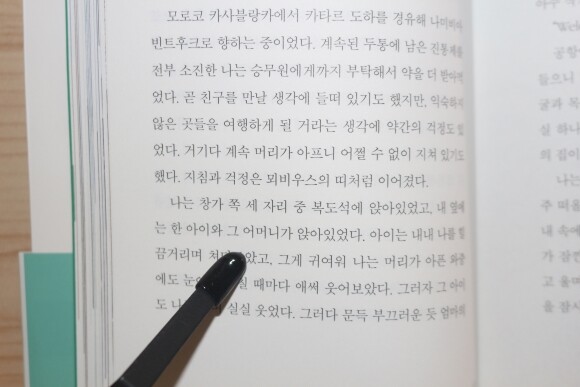 모로코 카사블랑카에서 카타르 도하를 경유해 나미비아
빈트후크로 향하는 중이었다. 계속된 두통에 남은 진통제를
전부 소진한 나는 승무원에게까지 부탁해서 약을 더 받아먹
었다. 곧 친구를 만날 생각에 들떠 있기도 했지만, 익숙하지
않은 곳들을 여행하게 될 거라는 생각에 약간의 걱정도 있
었다. 거기다 계속 머리가 아프니 어쩔 수 없이 지쳐 있기도
했다. 지침과 걱정은 뫼비우스의 띠처럼 이어졌다.
나는 창가 쪽 세 자리 중 복도석에 앉아있었고, 내 옆에
는 한 아이와 그 어머니가 앉아있었다. 아이는 내내 나를 힐
끔거리며 았고, 그게 귀여워 나는 머리가 아픈 와중
에도 때마다 애써 웃어보았다. 그러자 그 아이
도 실실 웃었다. 그러다 문득 부끄러운 듯 엄마의